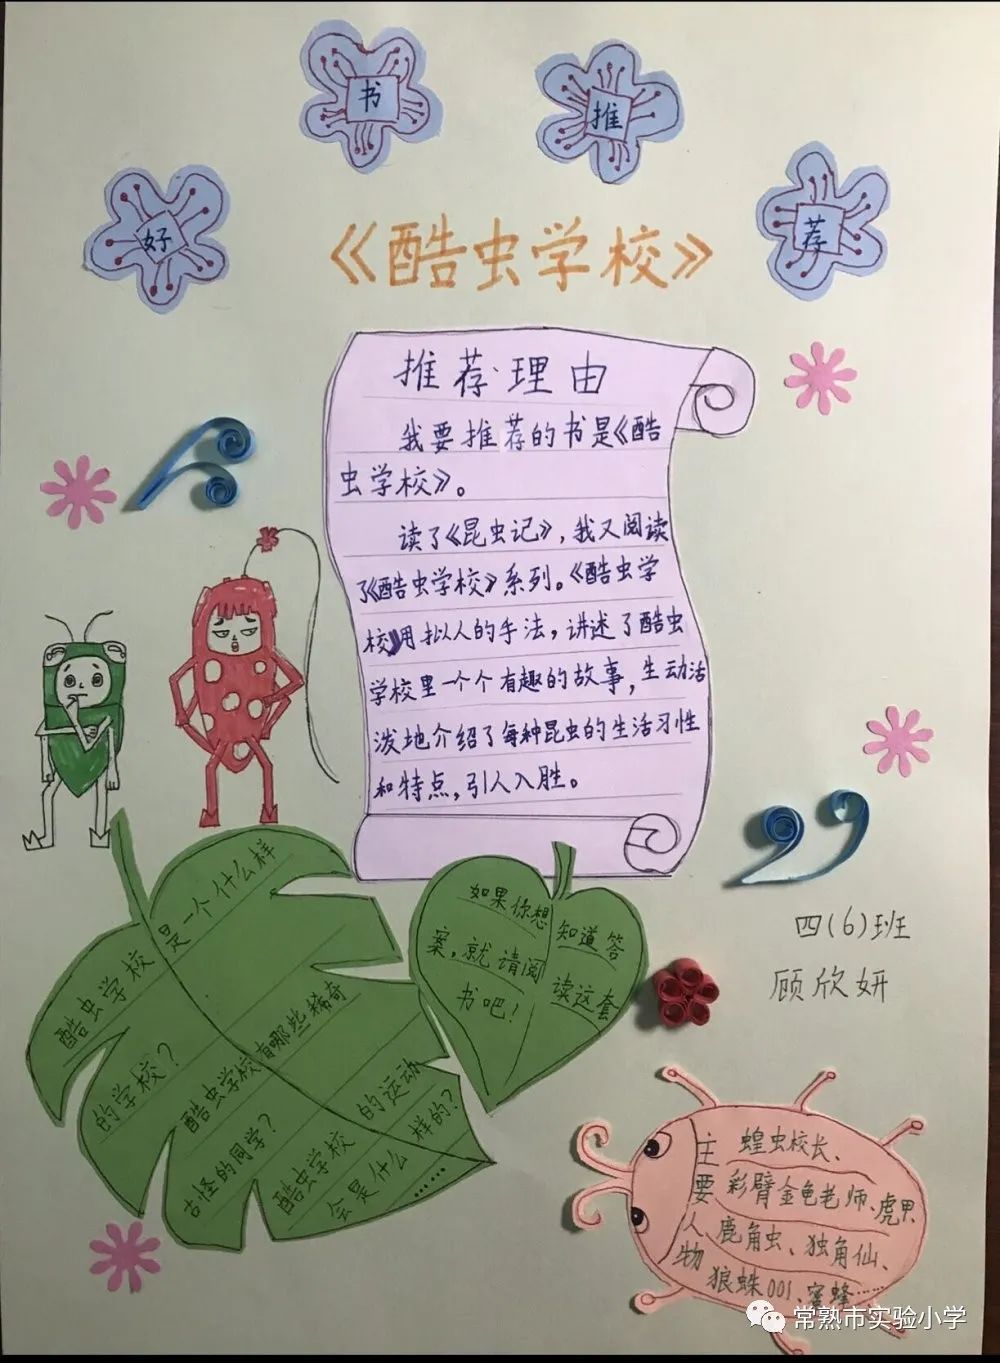 好书推荐
《酷虫学校》
推荐理由
我要推荐的书是《酷
虫学校》。
读了《昆虫记》，我又阅读
了《酷虫学校》系列。《酷虫学
校》用拟人的手法，讲述了酷虫
学校里一个个有趣的故事，生动活
泼地介绍了每种昆虫的生活习性
和特点，引人入胜。
酷虫学校是一个什么样
的学校？
酷虫学校有哪些稀奇
古怪的同学？
酷虫学校的运动
会是什么样的？
……
如果你想知道答
案，就请阅读这套
书吧！
四(6)班
顾欣妍
主要人物
蝗虫校长、
彩臂金龟老师、虎甲、
鹿角虫、独角仙、
狼蛛001、蜜蜂……
常熟市实验小学